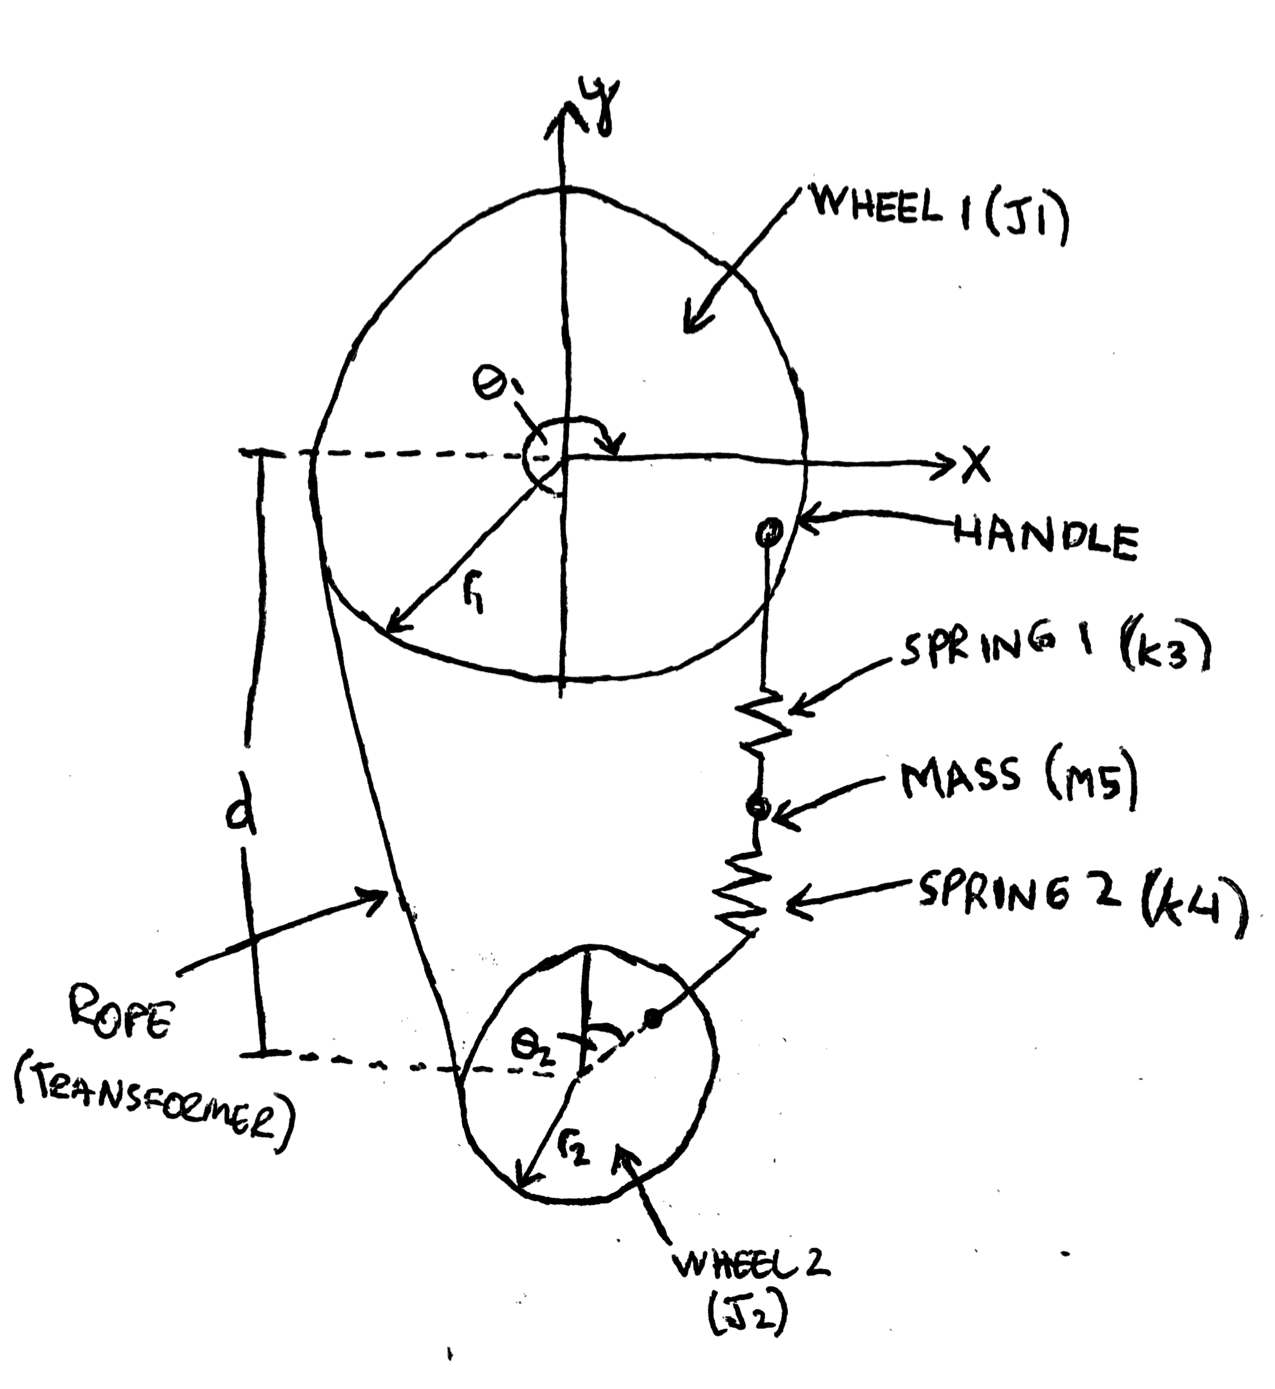 y
WHEEL 1 (J1)
θ1
X
HANDLE
r1
SPRING 1 (K3)
d
MASS (M5)
SPRING 2 (K4)
ROPE
(TRANSFORMER)
θ2
r2
WHEEL 2
(J2)